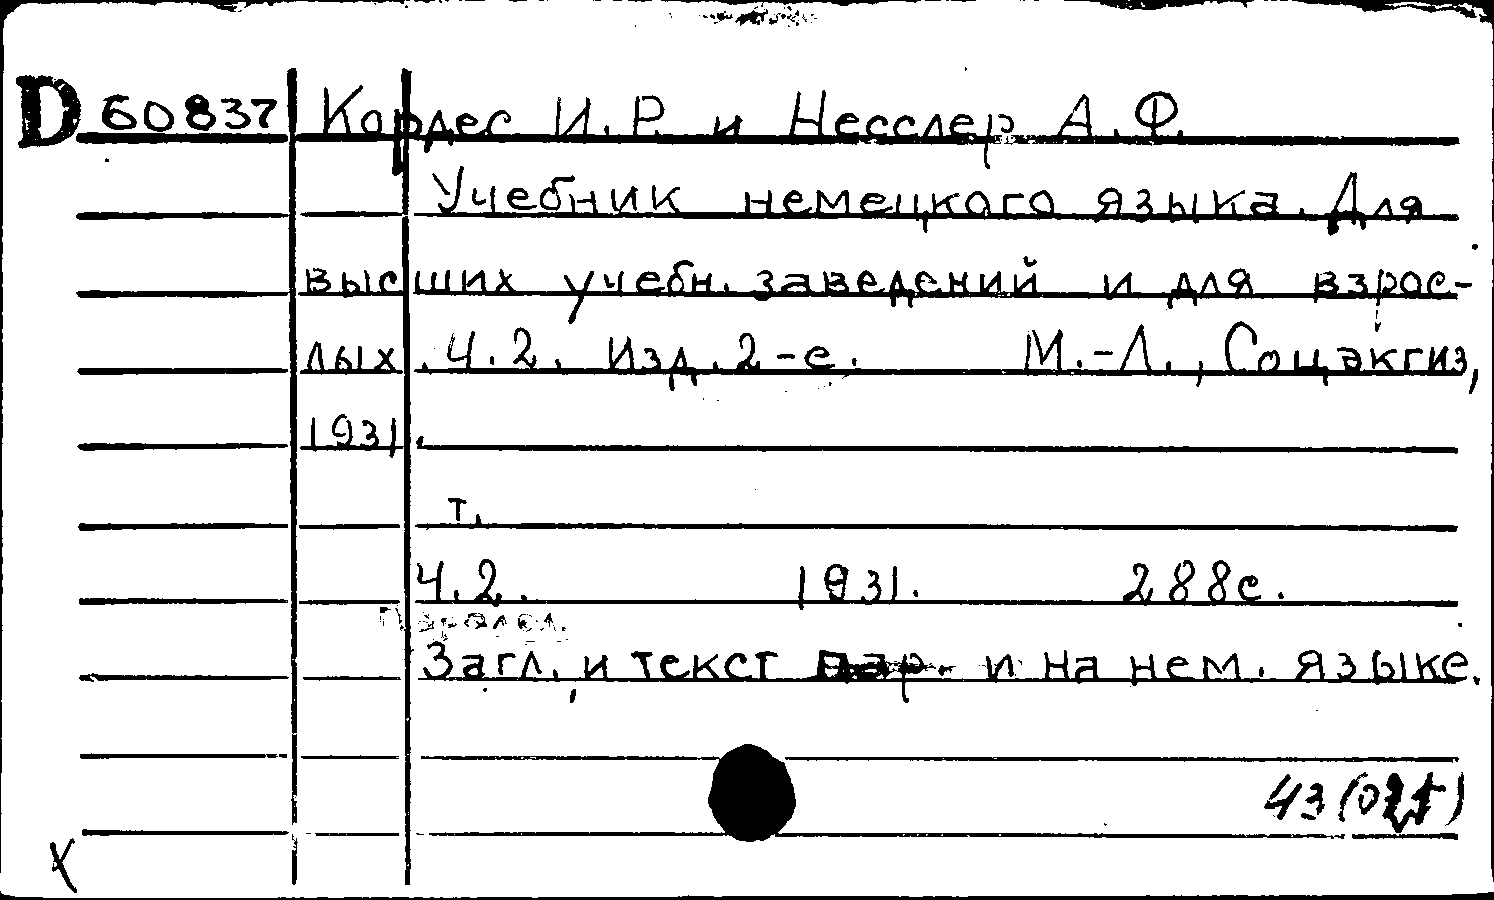 D 60837 Кордес И.Р. и Несслер А.Ф.
Учебник немецкого языка. Для
высших учебн. заведений и для взрос-
лых. Ч.2. Изд. 2-е. М.-Л., Соцэкгиз,
1931.
т.
Ч.2. 1931. 288с.
Паралел.
Загл. и текст пар. и на нем. языке.
43(02
x